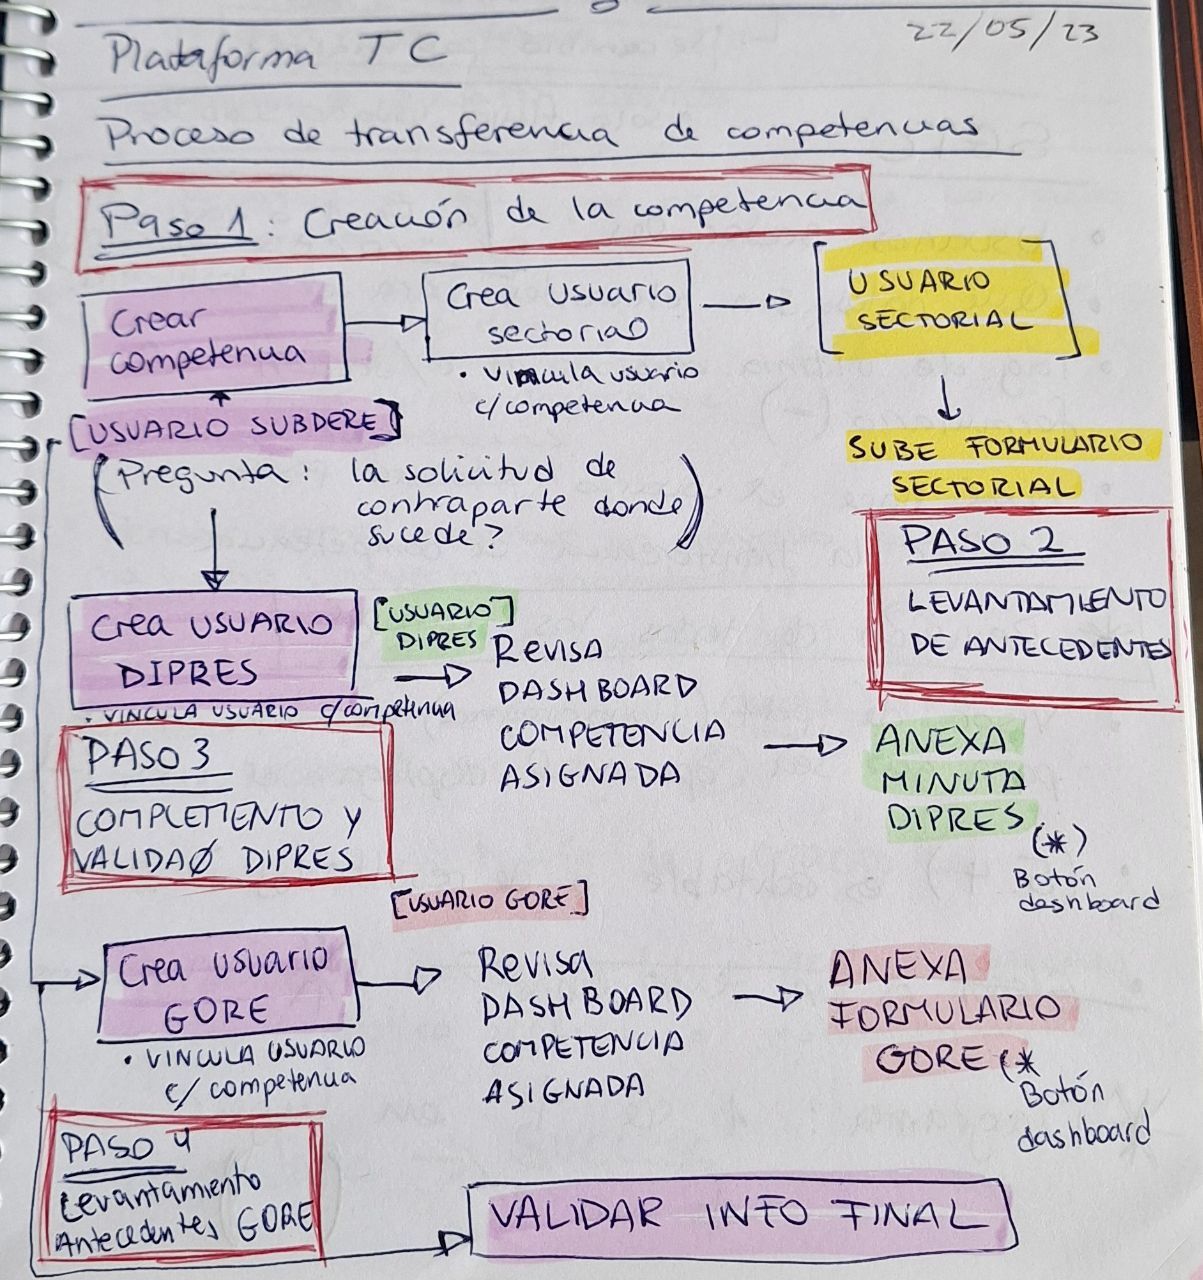 22/05/23
Plataforma TC
Proceso de transferencia de competencias
Paso 1: Creación de la competencia
Crear
competencia
Crea usuario
sectorial
• vincula usuario
c/competencia
USUARIO
SECTORIAL
[USUARIO SUBDERE]
(Pregunta: la solicitud de
contraparte donde
sucede?)
SUBE FORMULARIO
SECTORIAL
PASO 2
LEVANTAMIENTO
DE ANTECEDENTES
Crea USUARIO
DIPRES
• VINCULA USUARIO c/competencia
[USUARIO
DIPRES]
Revisa
DASHBOARD
COMPETENCIA
ASIGNADA
ANEXA
MINUTA
DIPRES
(*)
Botón
dashboard
PASO 3
COMPLEMENTO Y
VALIDAØ DIPRES
[USUARIO GORE]
Crea usuario
GORE
• VINCULA USUARIO
c/ competencia
Revisa
DASHBOARD
COMPETENCIA
ASIGNADA
ANEXA
FORMULARIO
GORE (*
Botón
dashboard
PASO 4
Levantamiento
Antecedentes GORE
VALIDAR INFO FINAL